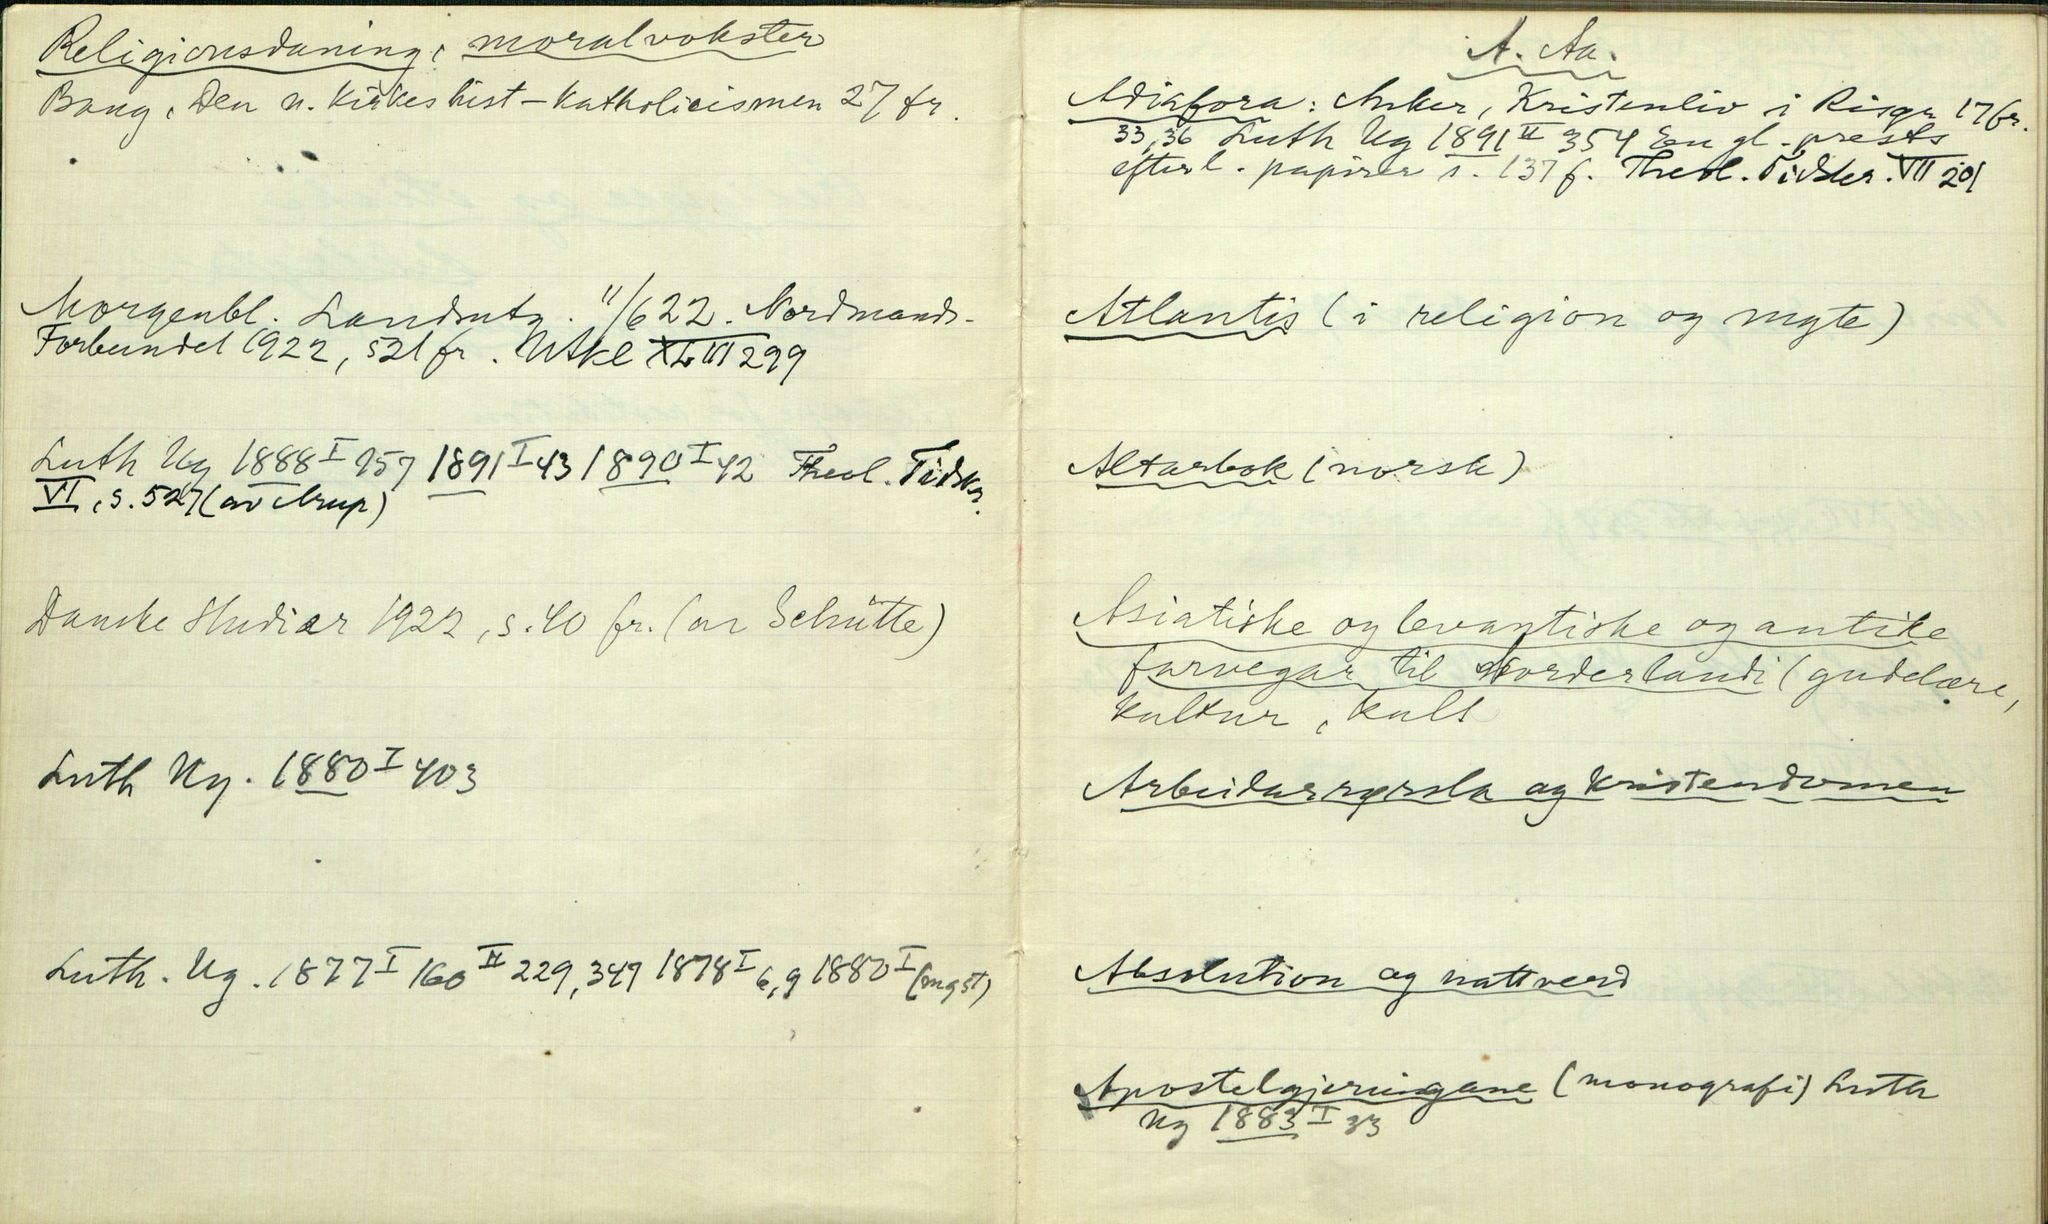 Religionsdaning, moralvokster
Bang, Den n. Kirkes hist – Katholicismen 27 fr.
Morgenbl. Landsutg. 11/6 22. Nordmands-
Forbundet 1922, 521 fr. NtKl XLIII 299
Luth Ug 1888 I 157 1891 I 43 1890 I 42 Theol. Tidskr.
VI, s. 527 (av Arup)
Danske Studier 1922, s. 40 fr. (av Schütte)
Luth Ug. 1880 I 403
Luth. Ug. 1877 I 160 II 229, 347 1878 I 6, 9 1880 I (mgst)
A. Aa.
Adiafora: Anker, Kristenliv i Risør 17 fr.
33, 36 Luth Ug 1891 II 354 En gl. prests
efterl. papirer s. 137 f. Theol. Tidskr. VII 201
Atlantis (i religion og myte)
Altarbok (norsk)
Asiatiske og levantiske og antike
farvegar til Norderlandi (gudelære,
kultur, kult
Arbeidarrørsla og kristendomen
Absolution og nattverd
Apostelgjerningane (monografi) Luth
Ug 1883 I 33